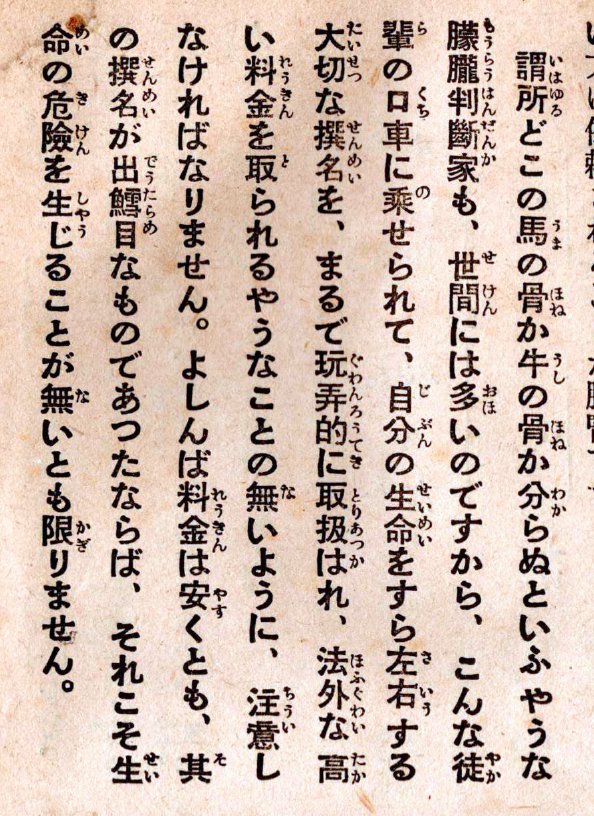 謂所どこの馬の骨か牛の骨か分らぬといふやうな
朦朧判斷家も、世間には多いのですから、こんな徒
輩の口車に乘せられて、自分の生命をすら左右する
大切な撰名を、まるで玩弄的に取扱はれ、法外な高
い料金を取られるやうなことの無いように、注意し
なければなりません。よしんば料金は安くとも、其
の撰名が出鱈目なものであつたならば、それこそ生
命の危險を生じることが無いとも限りません。